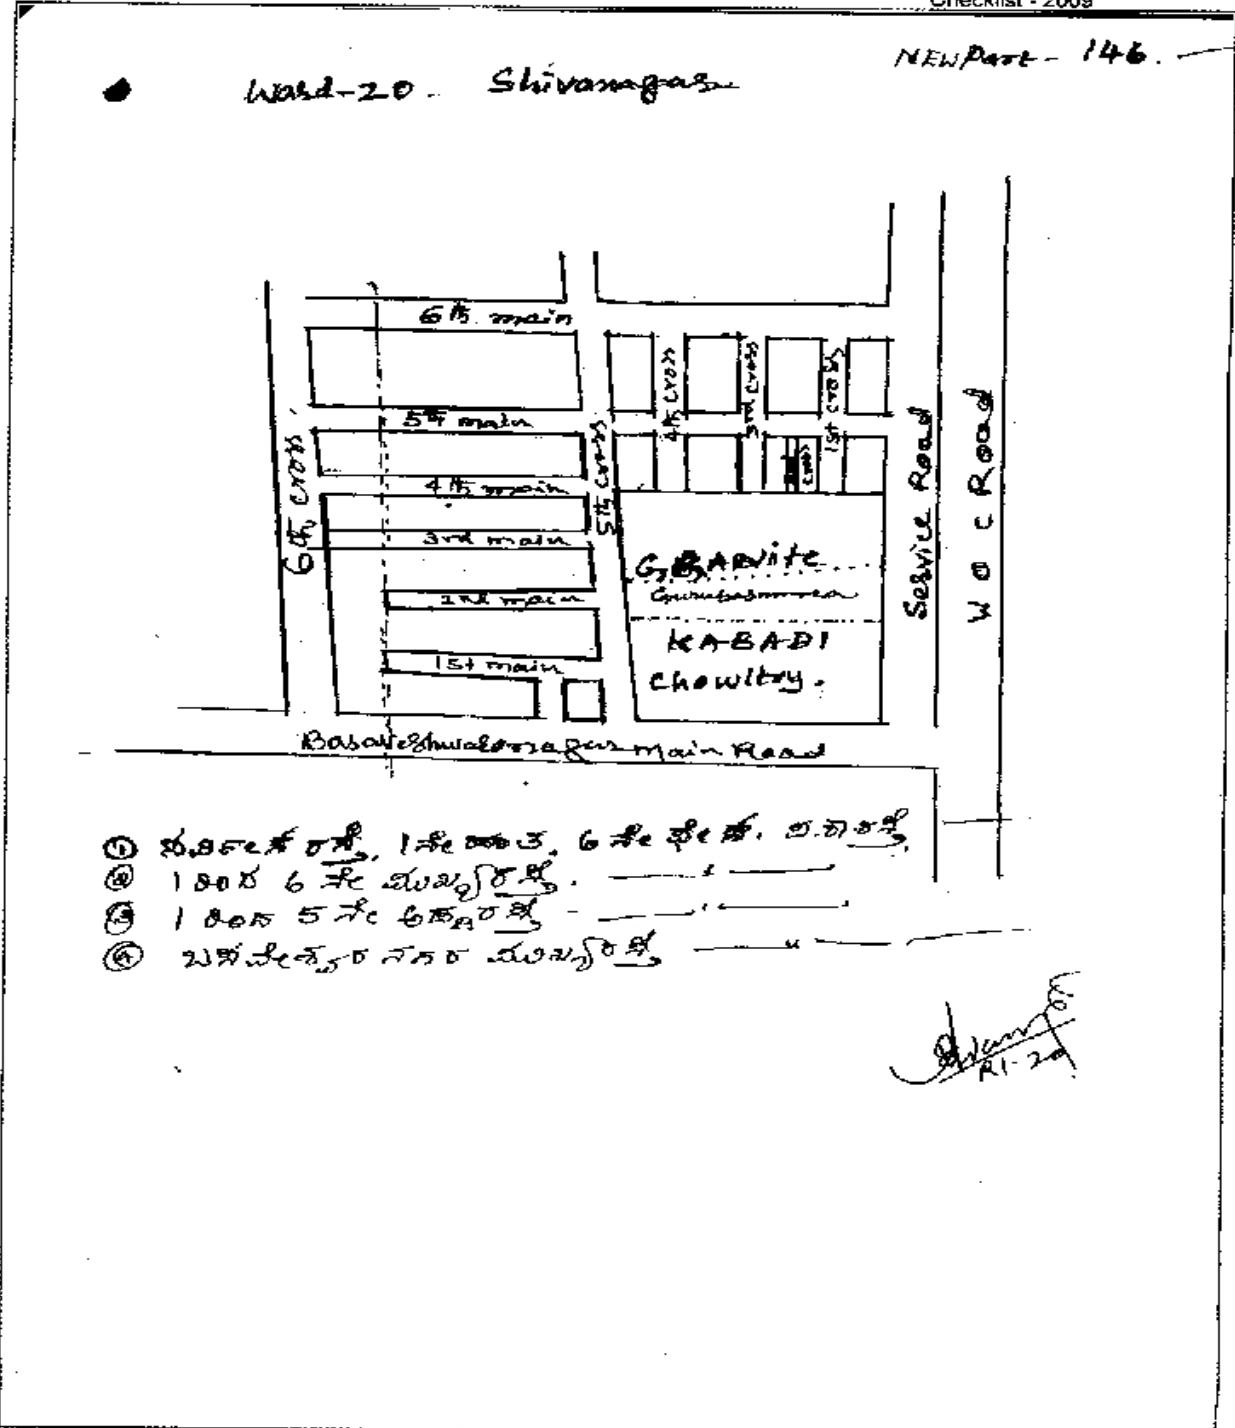 Checklist - 2009
NEW Part - 146.
Ward-20. Shivanagar
6th main
5th main
4th main
3rd main
2nd main
1st main
6th cross
5th cross
4th cross
3rd cross
cross
1st cross
Service Road
W O C Road
KABADI
Chowltry.
Basaveshwaranagar main Road
① ಸರ್ವೀಸ್ ರಸ್ತೆ, 1ನೇ ಹಂತ, 6 ನೇ ಫೇಸ್,
② 1 ರಿಂದ 6 ನೇ ಮುಖ್ಯರಸ್ತೆ. — " —
③ 1 ರಿಂದ 5 ನೇ ಅಡ್ಡರಸ್ತೆ - — " —
④ ಬಸವೇಶ್ವರ ನಗರ ಮುಖ್ಯರಸ್ತೆ — " —
RI-20